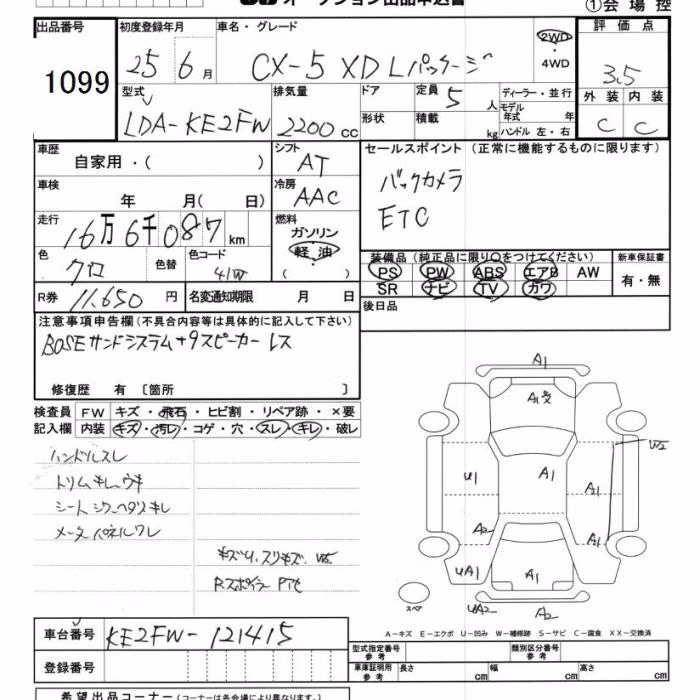 オークション出品申込書
①会場控
出品番号 初度登録年月 車名・グレード 評価点
1099 25 6月 CX-5 XD Lパッケージ 2WD・4WD 3.5
型式 排気量 ドア 定員 5人 ディーラー・並行 外装 内装
LDA-KE2FW 2200cc 形状 積載 kg モデル年式 年 C C
ハンドル 左・右
車歴 自家用・( ) シフト AT セールスポイント(正常に機能するものに限ります)
車検 年 月( 日) 冷房 AAC バックカメラ
走行 16万6千087km 燃料 ガソリン 軽油 ( ) ETC
色 クロ 色替 色コード 41W
装備品(純正品に限り○をつけてください) 新車保証書
PS PW ABS エアB AW 有・無
SR ナビ TV カワ
R券 11,650円 名変通知期限 月 日
後日品
注意事項申告欄(不具合内容等は具体的に記入して下さい)
BOSEサンドシステム+9スピーカー レス
修復歴 有 〔箇所 〕
検査員 FW キズ・飛石・ヒビ割・リペア跡・×要
記入欄 内装 キズ・汚レ・コゲ・穴・スレ・キレ・破レ
ハンドルスレ
トリムキレ、ウキ
シートシワ、ヘタリ、キレ
メータパネルワレ
Rスポイラー
A1
A1
U1
A1
A1
A2
A1
UA1
A1
UA2
A2
スペア
A-キズ E-エクボ U-凹み W-補修跡 S-サビ C-腐食 XX-交換済
車台番号 KE2FW-121415
登録番号
型式指定番号 参考 類別区分番号 参考
車庫証明用 参考 長さ cm 幅 cm 高さ cm
希望出品コーナー(コーナーは各会場により異なります。)